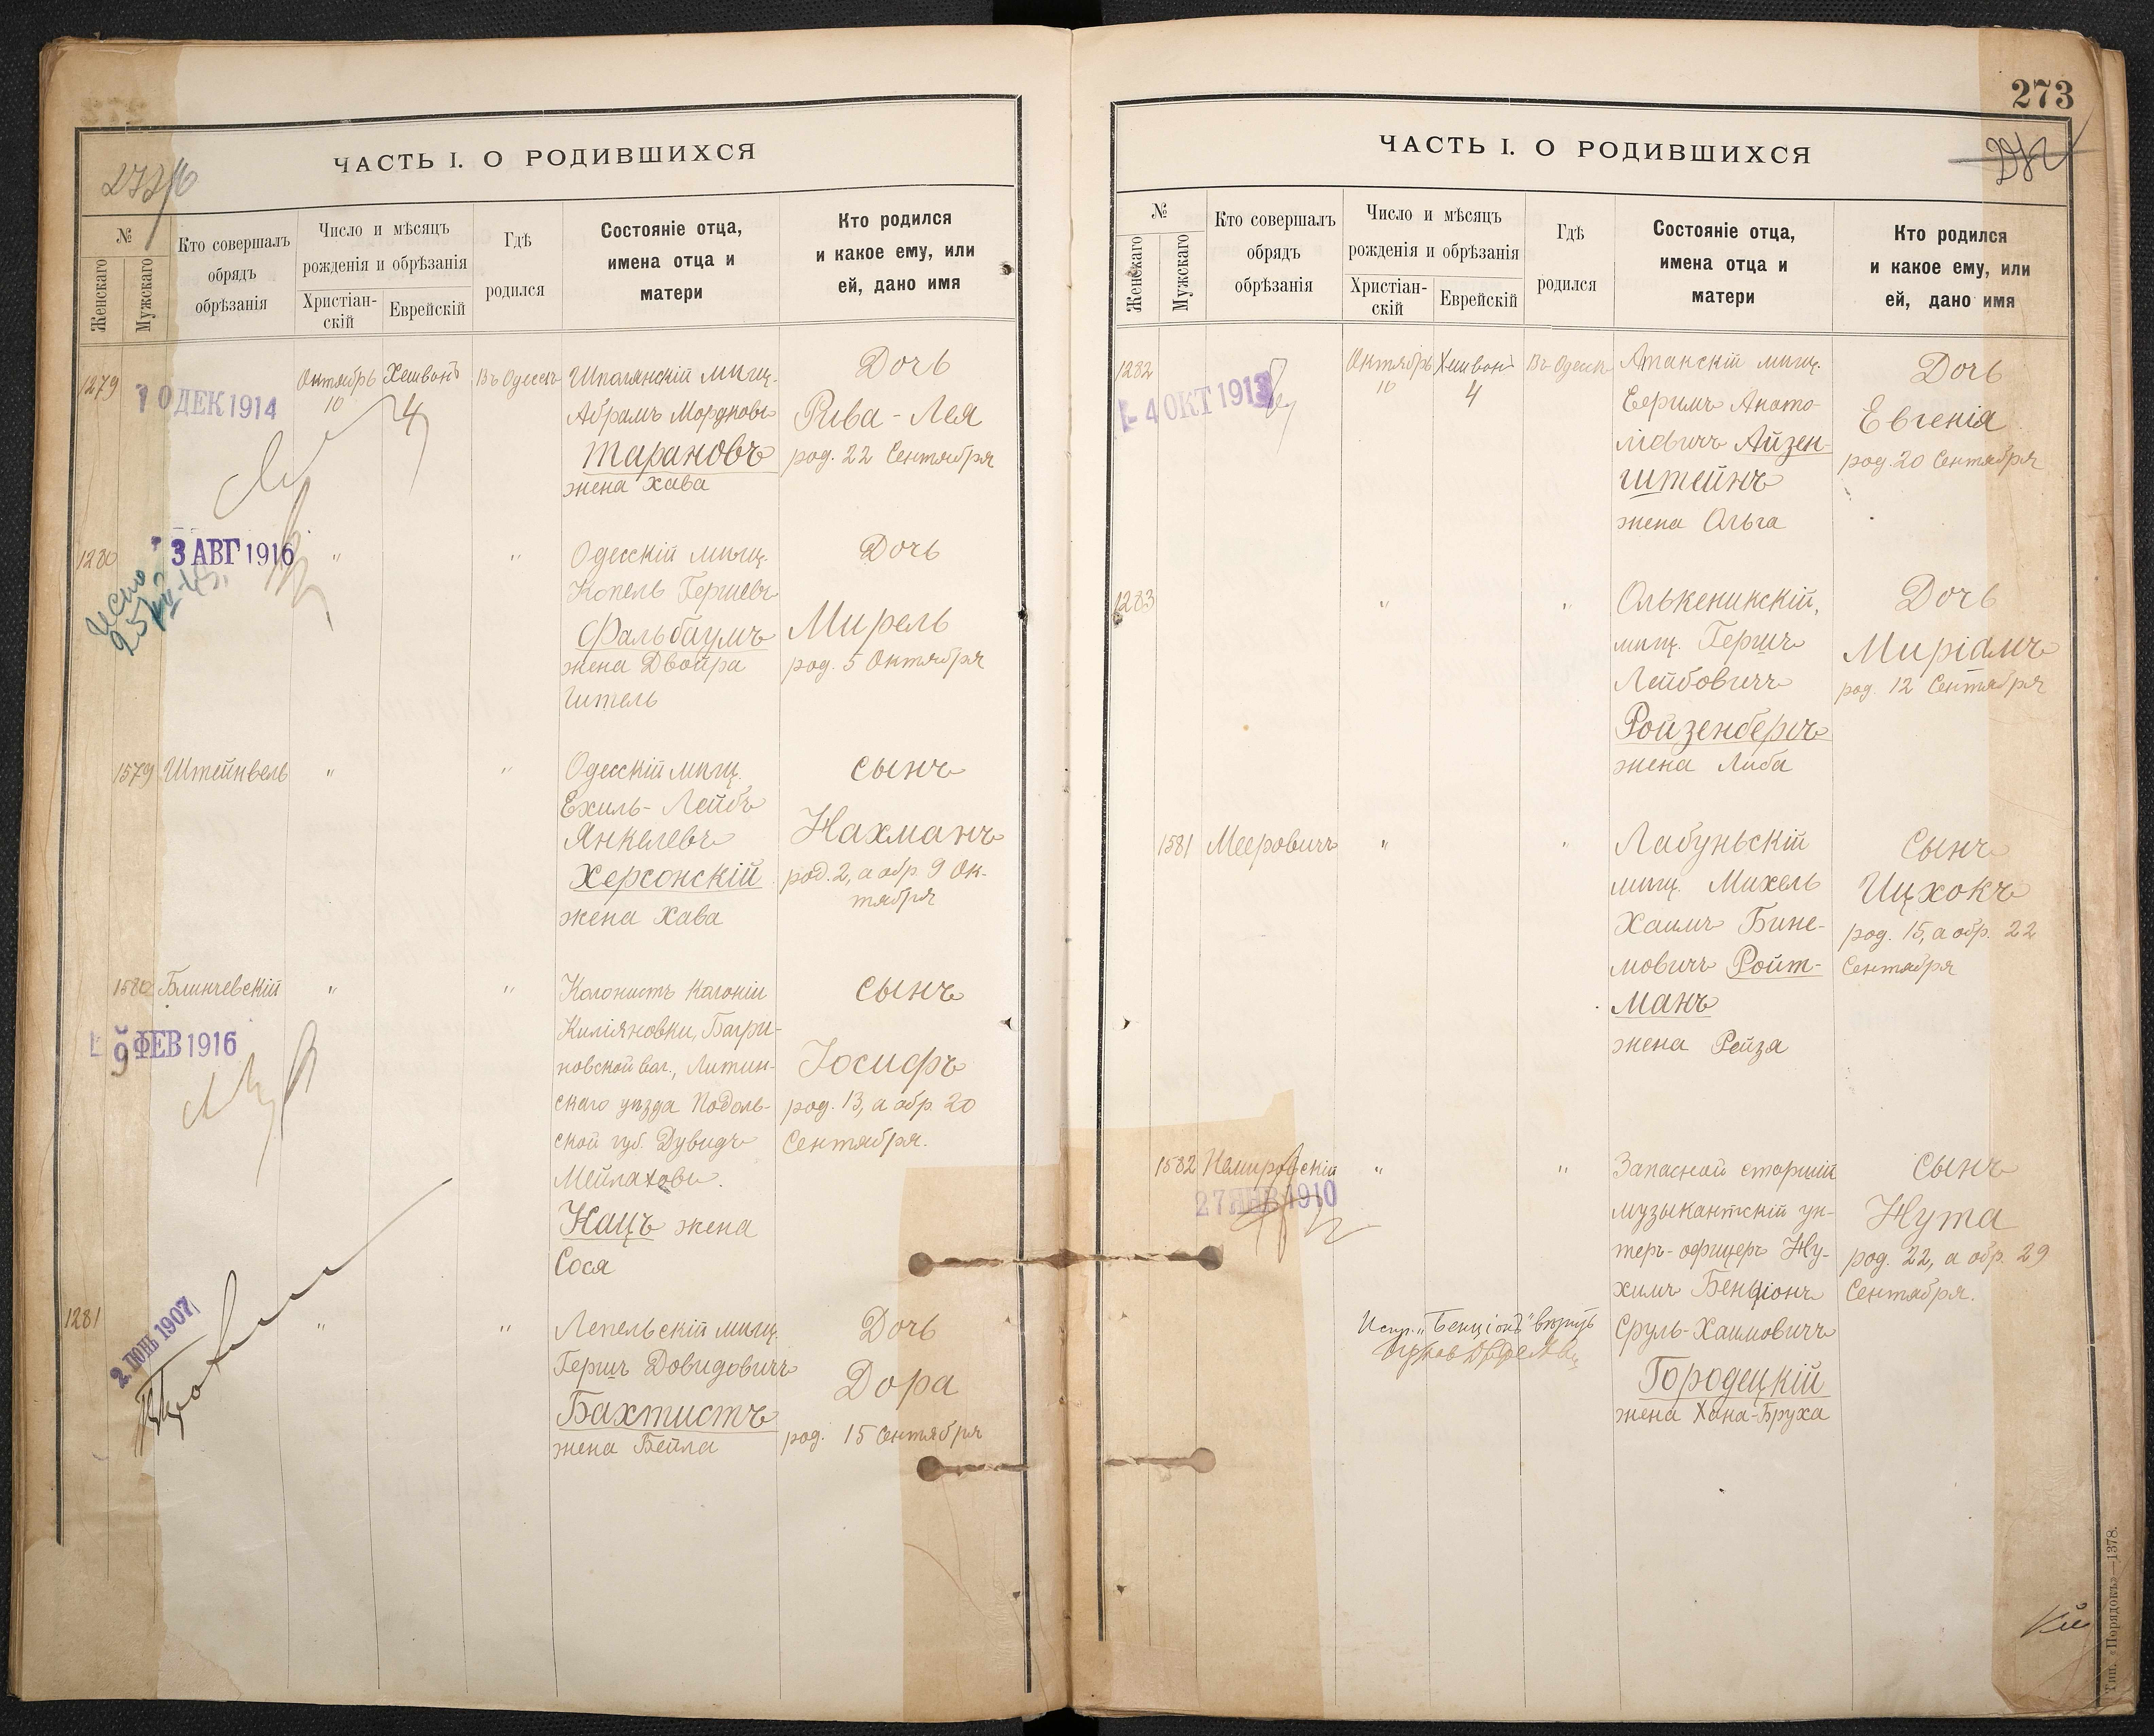 ЧАСТЬ I. О РОДИВШИХСЯ
№
Женскаго
Мужскаго
Кто совершалъ
обрядъ
обрѣзанія
Число и мѣсяцъ
рожденія и обрѣзанія
Христіан-
скій
Еврейскій
Гдѣ
родился
Состояніе отца,
имена отца и
матери
Кто родился
и какое ему, или
ей, дано имя
1279
10 ДЕК 1914
Октябрь
10
Хешвонъ
4
Въ Одессѣ
Шпаганскій мѣщ.
Абрамъ Мордковъ
Тарановъ
жена Хава
Дочь
Рива-Лея
род. 22 Сентября
1280
3 АВГ 1916
"
"
Одесскій мѣщ.
Копель Гершевъ
Фальбаумъ
жена Двойра
Гитель
Дочь
Мирель
род. 5 Октября
1579
Штейнвель
"
"
Одесскій мѣщ.
Ехиль-Лейбъ
Янкелевъ
Херсонскій
жена Хава
сынъ
Нахманъ
род. 2, а обр. 9 Ок-
тября
1580
Блинчевскій
9 ФЕВ 1916
"
"
Колонистъ колоніи
Киліяновки, Багри-
новской вол., Литин-
скаго уѣзда Подоль-
ской губ. Дувидъ
Мейлаховъ.
Кацъ жена
Сося
сынъ
Іосифъ
род. 13, а обр. 20
Сентября.
1281
2 ІЮНЬ 1907
"
"
Лепельскій мѣщ.
Гершъ Довидовичъ
Бахтистъ
жена Бейла
Дочь
Дора
род. 15 Сентября
273
ЧАСТЬ I. О РОДИВШИХСЯ
№
Женскаго
Мужскаго
Кто совершалъ
обрядъ
обрѣзанія
Число и мѣсяцъ
рожденія и обрѣзанія
Христіан-
скій
Еврейскій
Гдѣ
родился
Состояніе отца,
имена отца и
матери
Кто родился
и какое ему, или
ей, дано имя
1282
4 ОКТ 1913
Октябрь
10
Хешвонъ
4
Въ Одессѣ
Атакскій мѣщ.
Ефримъ Анато-
ліовичъ Айзен-
штейнъ
жена Ольга
Дочь
Евгенія
род. 20 Сентября
1283
"
"
Олькеникскій,
мѣщ. Гершъ
Лейбовичъ
Ройзенбергъ
жена Либа
Дочь
Миріамъ
род. 12 Сентября
1581
Мееровичъ
"
"
Лабуньскій
мѣщ. Михель
Хаимъ Бине-
мовичъ Ройт-
манъ
жена Рейза
Сынъ
Ицхокъ
род. 15, а обр. 22
Сентября
1582
Немировскій
27 ЯНВ 1910
"
"
Запасной старшій
музыкантскій ун-
теръ-офицеръ Ну-
химъ Бенціонъ
Сруль-Хаимовичъ
Городецкій
жена Хана-Бруха
Сынъ
Нута
род. 22, а обр. 29
Сентября.
Испр. "Бенціонъ" вѣрить
Тип. «Порядокъ»—1378.